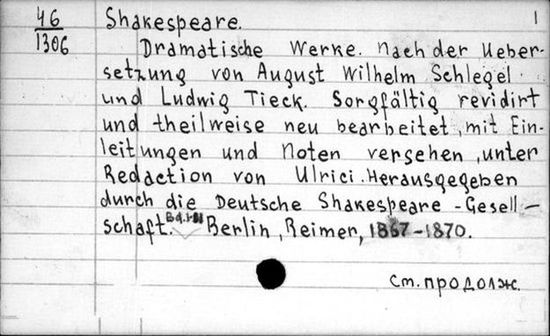 46 Shakespeare. 1
1306 Dramatische Werke. Nach der Ueber-
setzung von August Wilhelm Schlegel
und Ludwig Tieck. Sorgfältig revidirt
und theilweise neu bearbeitet, mit Ein-
leitungen und Noten versehen, unter
Redaction von Ulrici. Herausgegeben
durch die Deutsche Shakespeare-Gesell-
schaft. Berlin, Reimer, 1867-1870.
см. продолж.